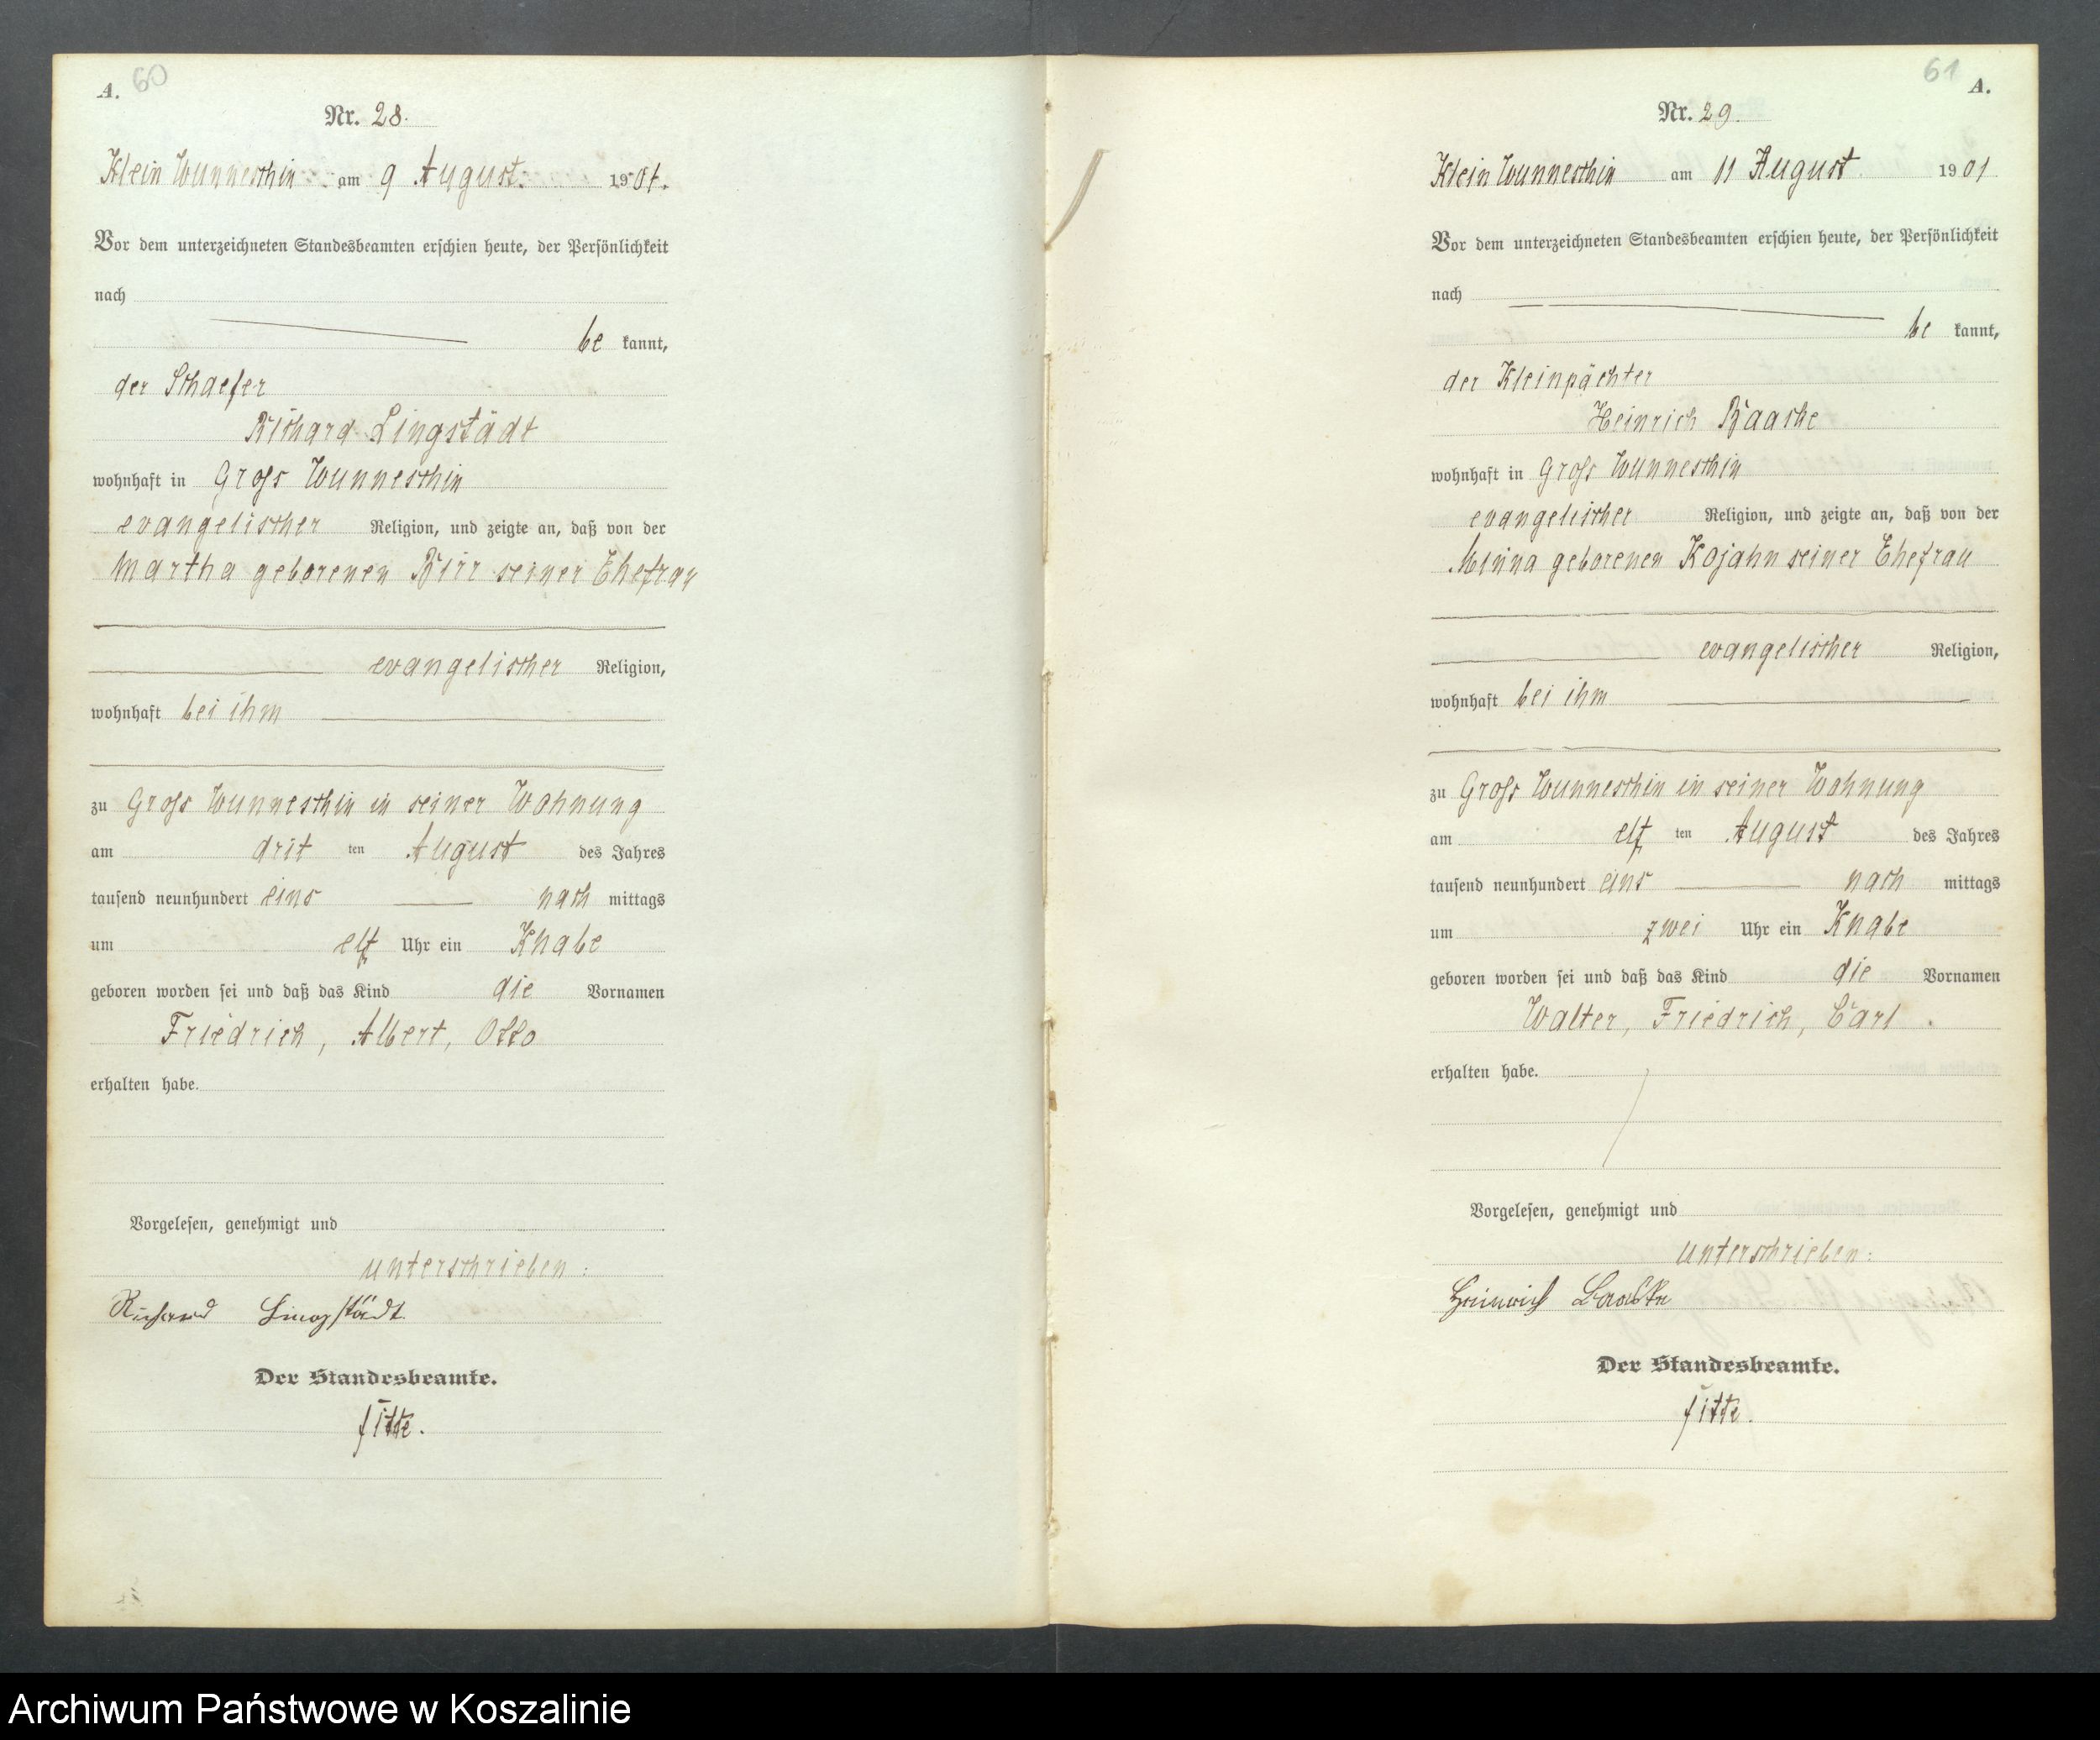 A. 60
Nr. 28.
Klein Wunneschin am 9 August. 1901.
Vor dem unterzeichneten Standesbeamten erschien heute, der Persönlichkeit
nach
be kannt,
der Schaefer
Richard Lingstädt
wohnhaft in Gross Wunneschin
evangelischer Religion, und zeigte an, daß von der
Martha geborenen Birr seiner Ehefrau
evangelischer Religion,
wohnhaft bei ihm
zu Gross Wunneschin in seiner Wohnung
am drit ten August des Jahres
tausend neunhundert eins nach mittags
um elf Uhr ein Knabe
geboren worden sei und daß das Kind die Vornamen
Friedrich, Albert, Otto
erhalten habe.
Vorgelesen, genehmigt und
unterschrieben:
Richard Lingstädt
Der Standesbeamte.
61 A.
Nr. 29.
Klein Wunneschin am 11 August 1901
Vor dem unterzeichneten Standesbeamten erschien heute, der Persönlichkeit
nach
be kannt,
der Kleinpächter
Heinrich Baaske
wohnhaft in Gross Wunneschin
evangelischer Religion, und zeigte an, daß von der
Minna geborenen Kojahn seiner Ehefrau
evangelischer Religion,
wohnhaft bei ihm
zu Gross Wunneschin in seiner Wohnung
am elf ten August des Jahres
tausend neunhundert eins nach mittags
um zwei Uhr ein Knabe
geboren worden sei und daß das Kind die Vornamen
Walter, Friedrich, Carl.
erhalten habe.
Vorgelesen, genehmigt und
unterschrieben:
Heinrich Baaske
Der Standesbeamte.
Archiwum Państwowe w Koszalinie